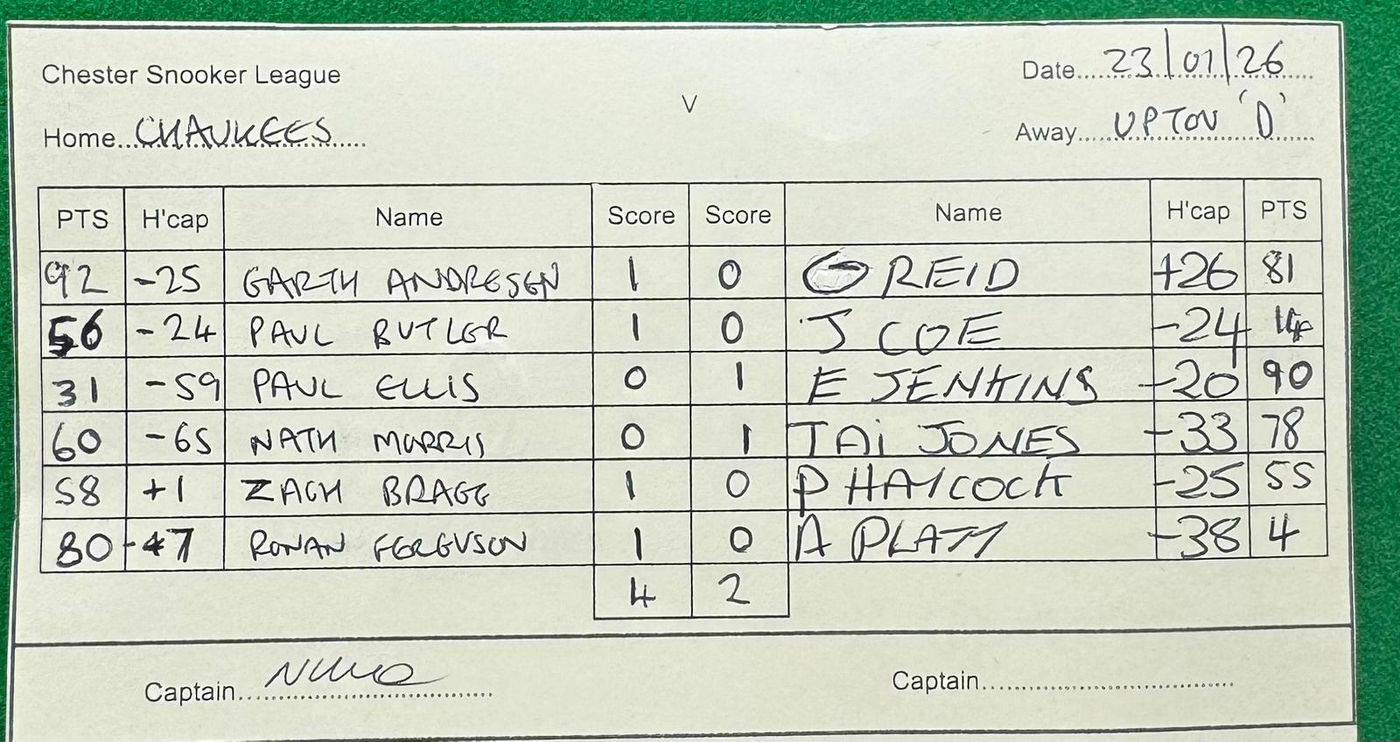 Chester Snooker League
Date 23/01/26
V
Home CHAUKEES
Away UPTON 'D'
PTS H'cap Name Score Score Name H'cap PTS
92 -25 GARTH ANDRESEN 1 0 G REID +26 81
56 -24 PAUL BUTLER 1 0 J COE -24 14
31 -59 PAUL ELLIS 0 1 E JENKINS -20 90
60 -65 NATH MORRIS 0 1 TAi JONES -33 78
58 +1 ZACH BRAGG 1 0 P HAYCOCK -25 55
80 -47 RONAN FERGUSON 1 0 A PLATT -38 4
4 2
Captain
Captain